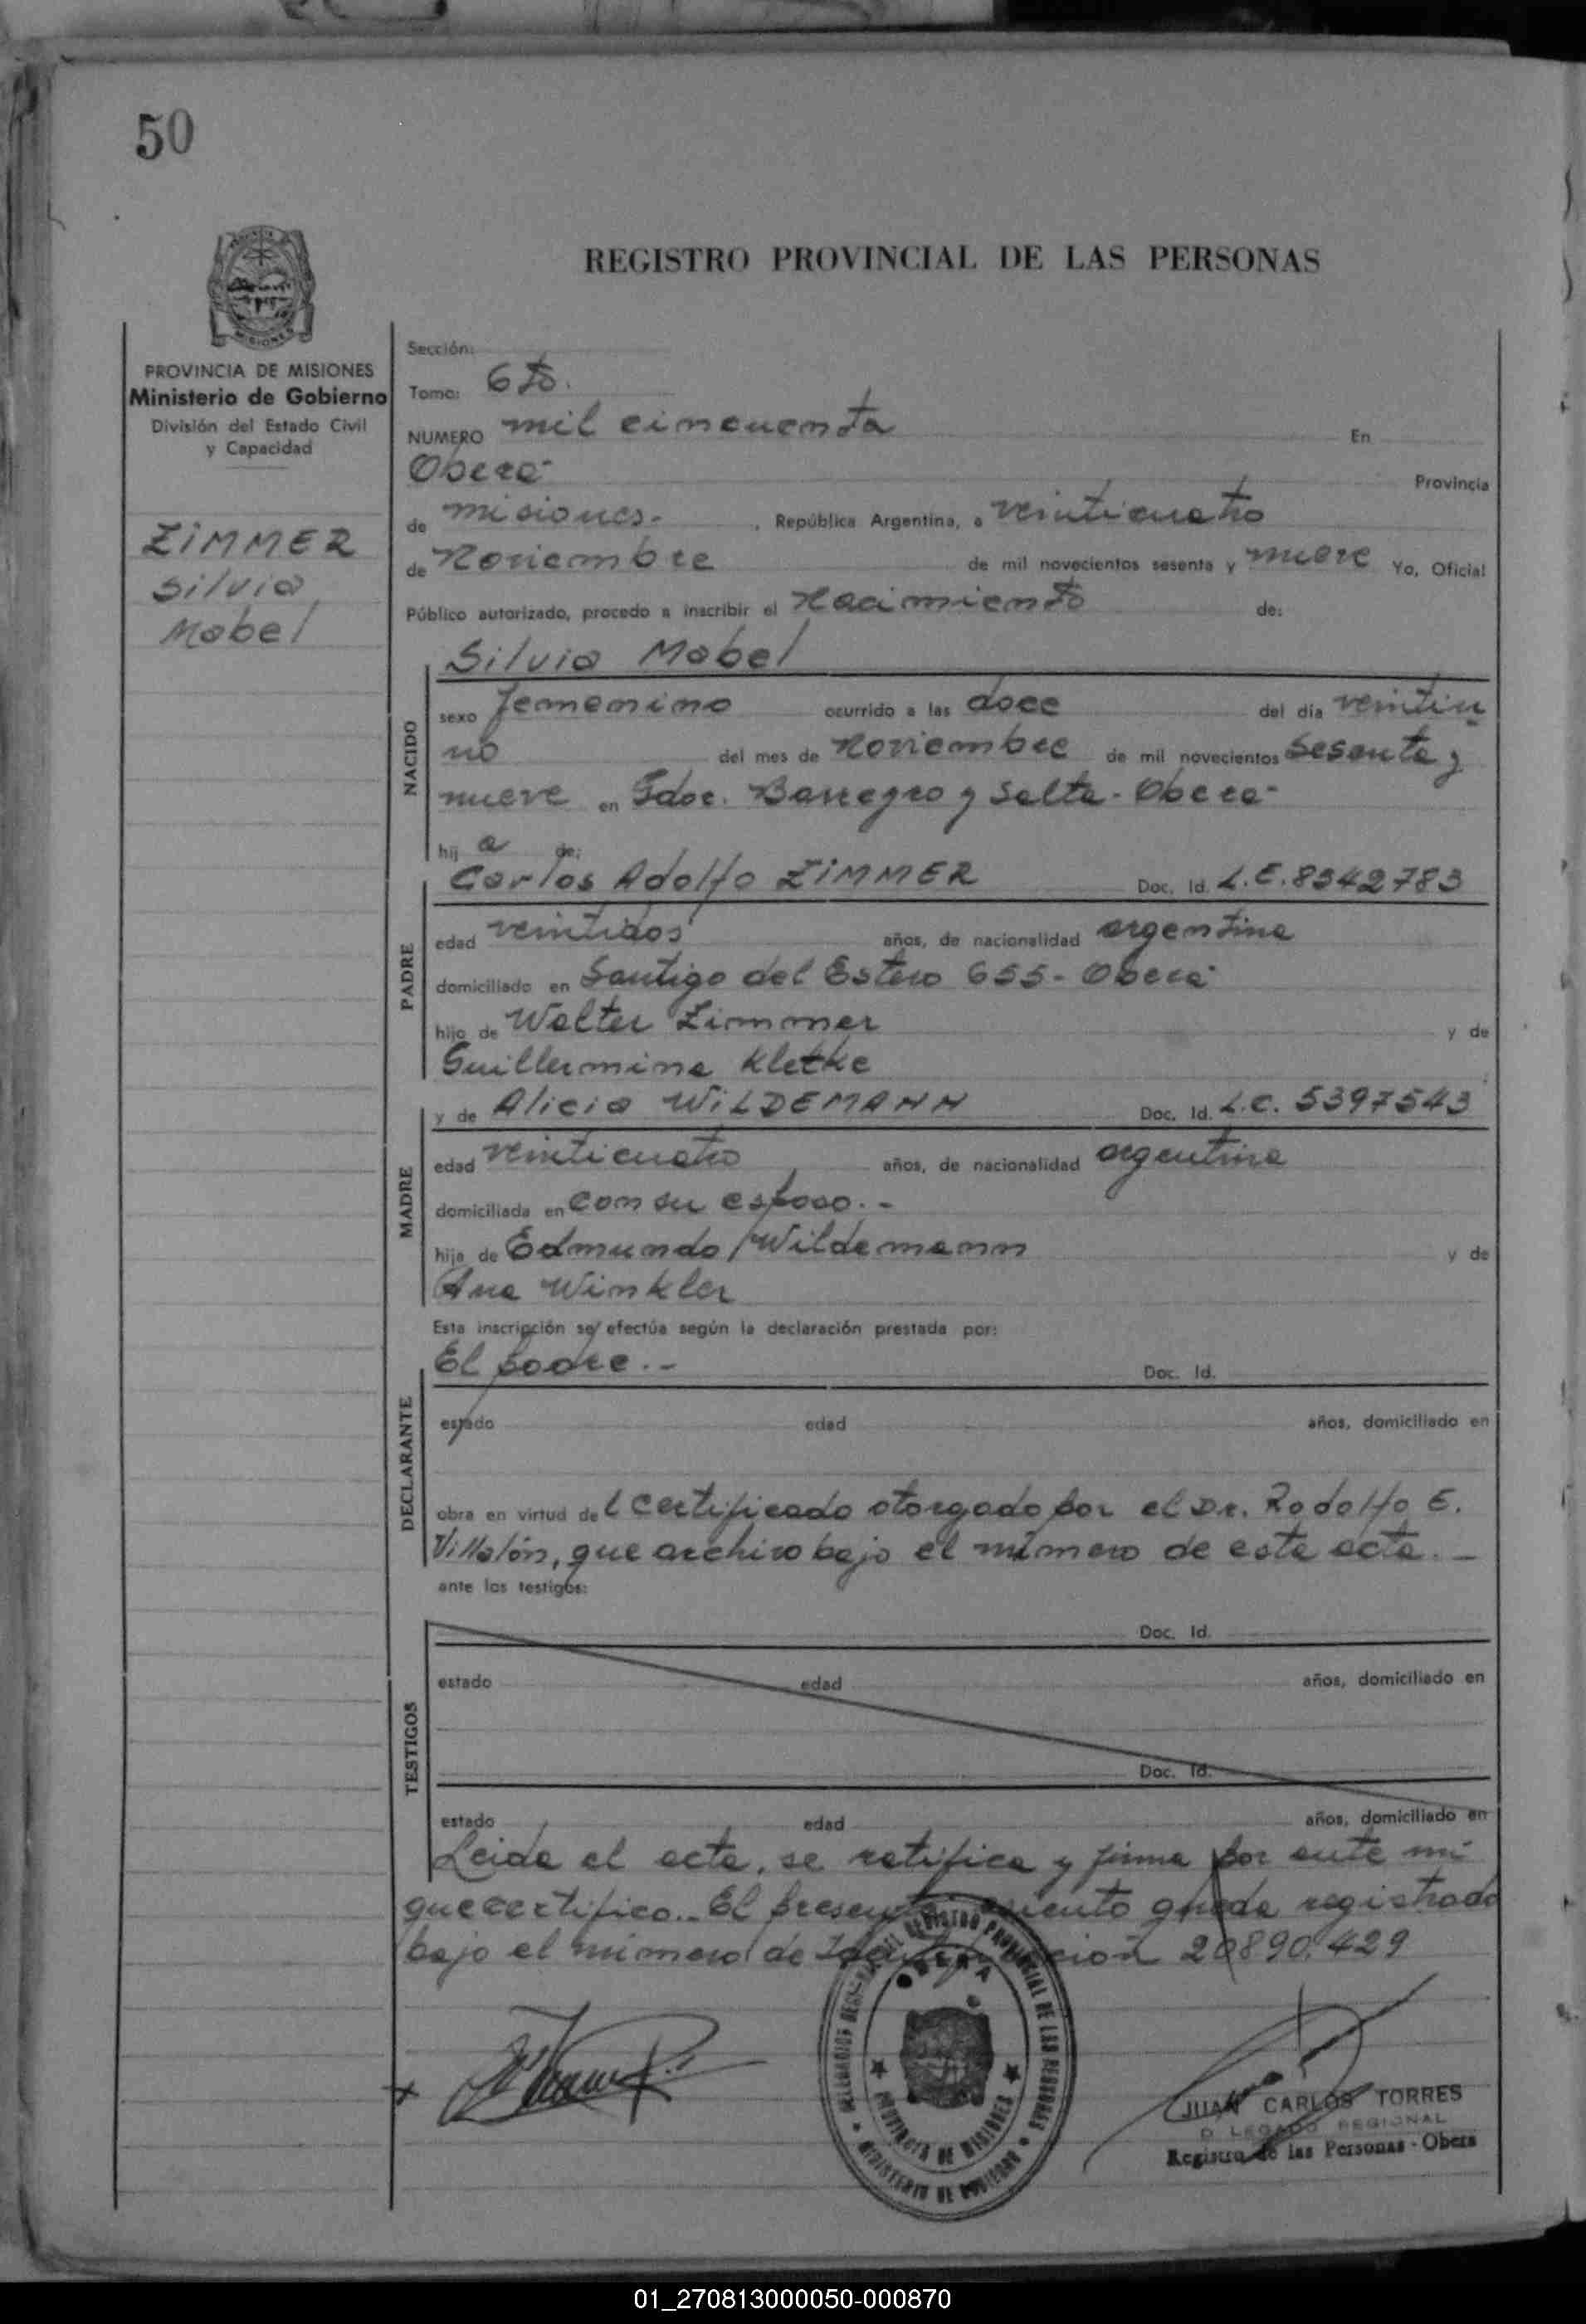 50
REGISTRO PROVINCIAL DE LAS PERSONAS
PROVINCIA DE MISIONES
Ministerio de Gobierno
División del Estado Civil
y Capacidad
ZIMMER
Silvia
Mabel
Sección:
Tomo: 6to.
NUMERO mil cincuenta En
Oberá Provincia
de misiones.- , República Argentina, a veinticuatro
de Noviembre de mil novecientos sesenta y nueve Yo, Oficial
Público autorizado, procedo a inscribir el Nacimiento de:
Silvia Mabel
NACIDO
sexo femenino ocurrido a las doce del día veintiu
no del mes de Noviembre de mil novecientos Sesenta y
nueve en Gdor. Barreyro y Salta - Oberá
hij a de:
PADRE
Carlos Adolfo ZIMMER Doc. Id. L.E. 8342783
edad veintidos años, de nacionalidad argentina
domiciliado en Santigo del Estero 655 - Oberá
hijo de Walter Zimmer y de
Guillermina Kletke
MADRE
y de Alicia WILDEMANN Doc. Id. L.C. 5397543
edad veinticuatro años, de nacionalidad argentina
domiciliada en con su esposo.-
hija de Edmundo Wildemann y de
Ana Winkler
Esta inscripción se efectúa según la declaración prestada por:
DECLARANTE
El padre.- Doc. Id.
estado edad años, domiciliado en
obra en virtud de l certificado otorgado por el Dr. Rodolfo E.
Villalón, que archivo bajo el número de esta acta.-
ante los testigos:
TESTIGOS
Doc. Id.
estado edad años, domiciliado en
Doc. Id.
estado edad años, domiciliado en
Leida el acta, se ratifica y firma por ante mí
que certifico.- El presente queda registrado
bajo el número de 20890.429
REGISTRO PROVINCIAL DE LAS PERSONAS
OBERA
PROVINCIA DE MISIONES
MINISTERIO DE GOBIERNO
JUAN CARLOS TORRES
DELEGADO REGIONAL
Registro de las Personas - Obera
01_270813000050-000870